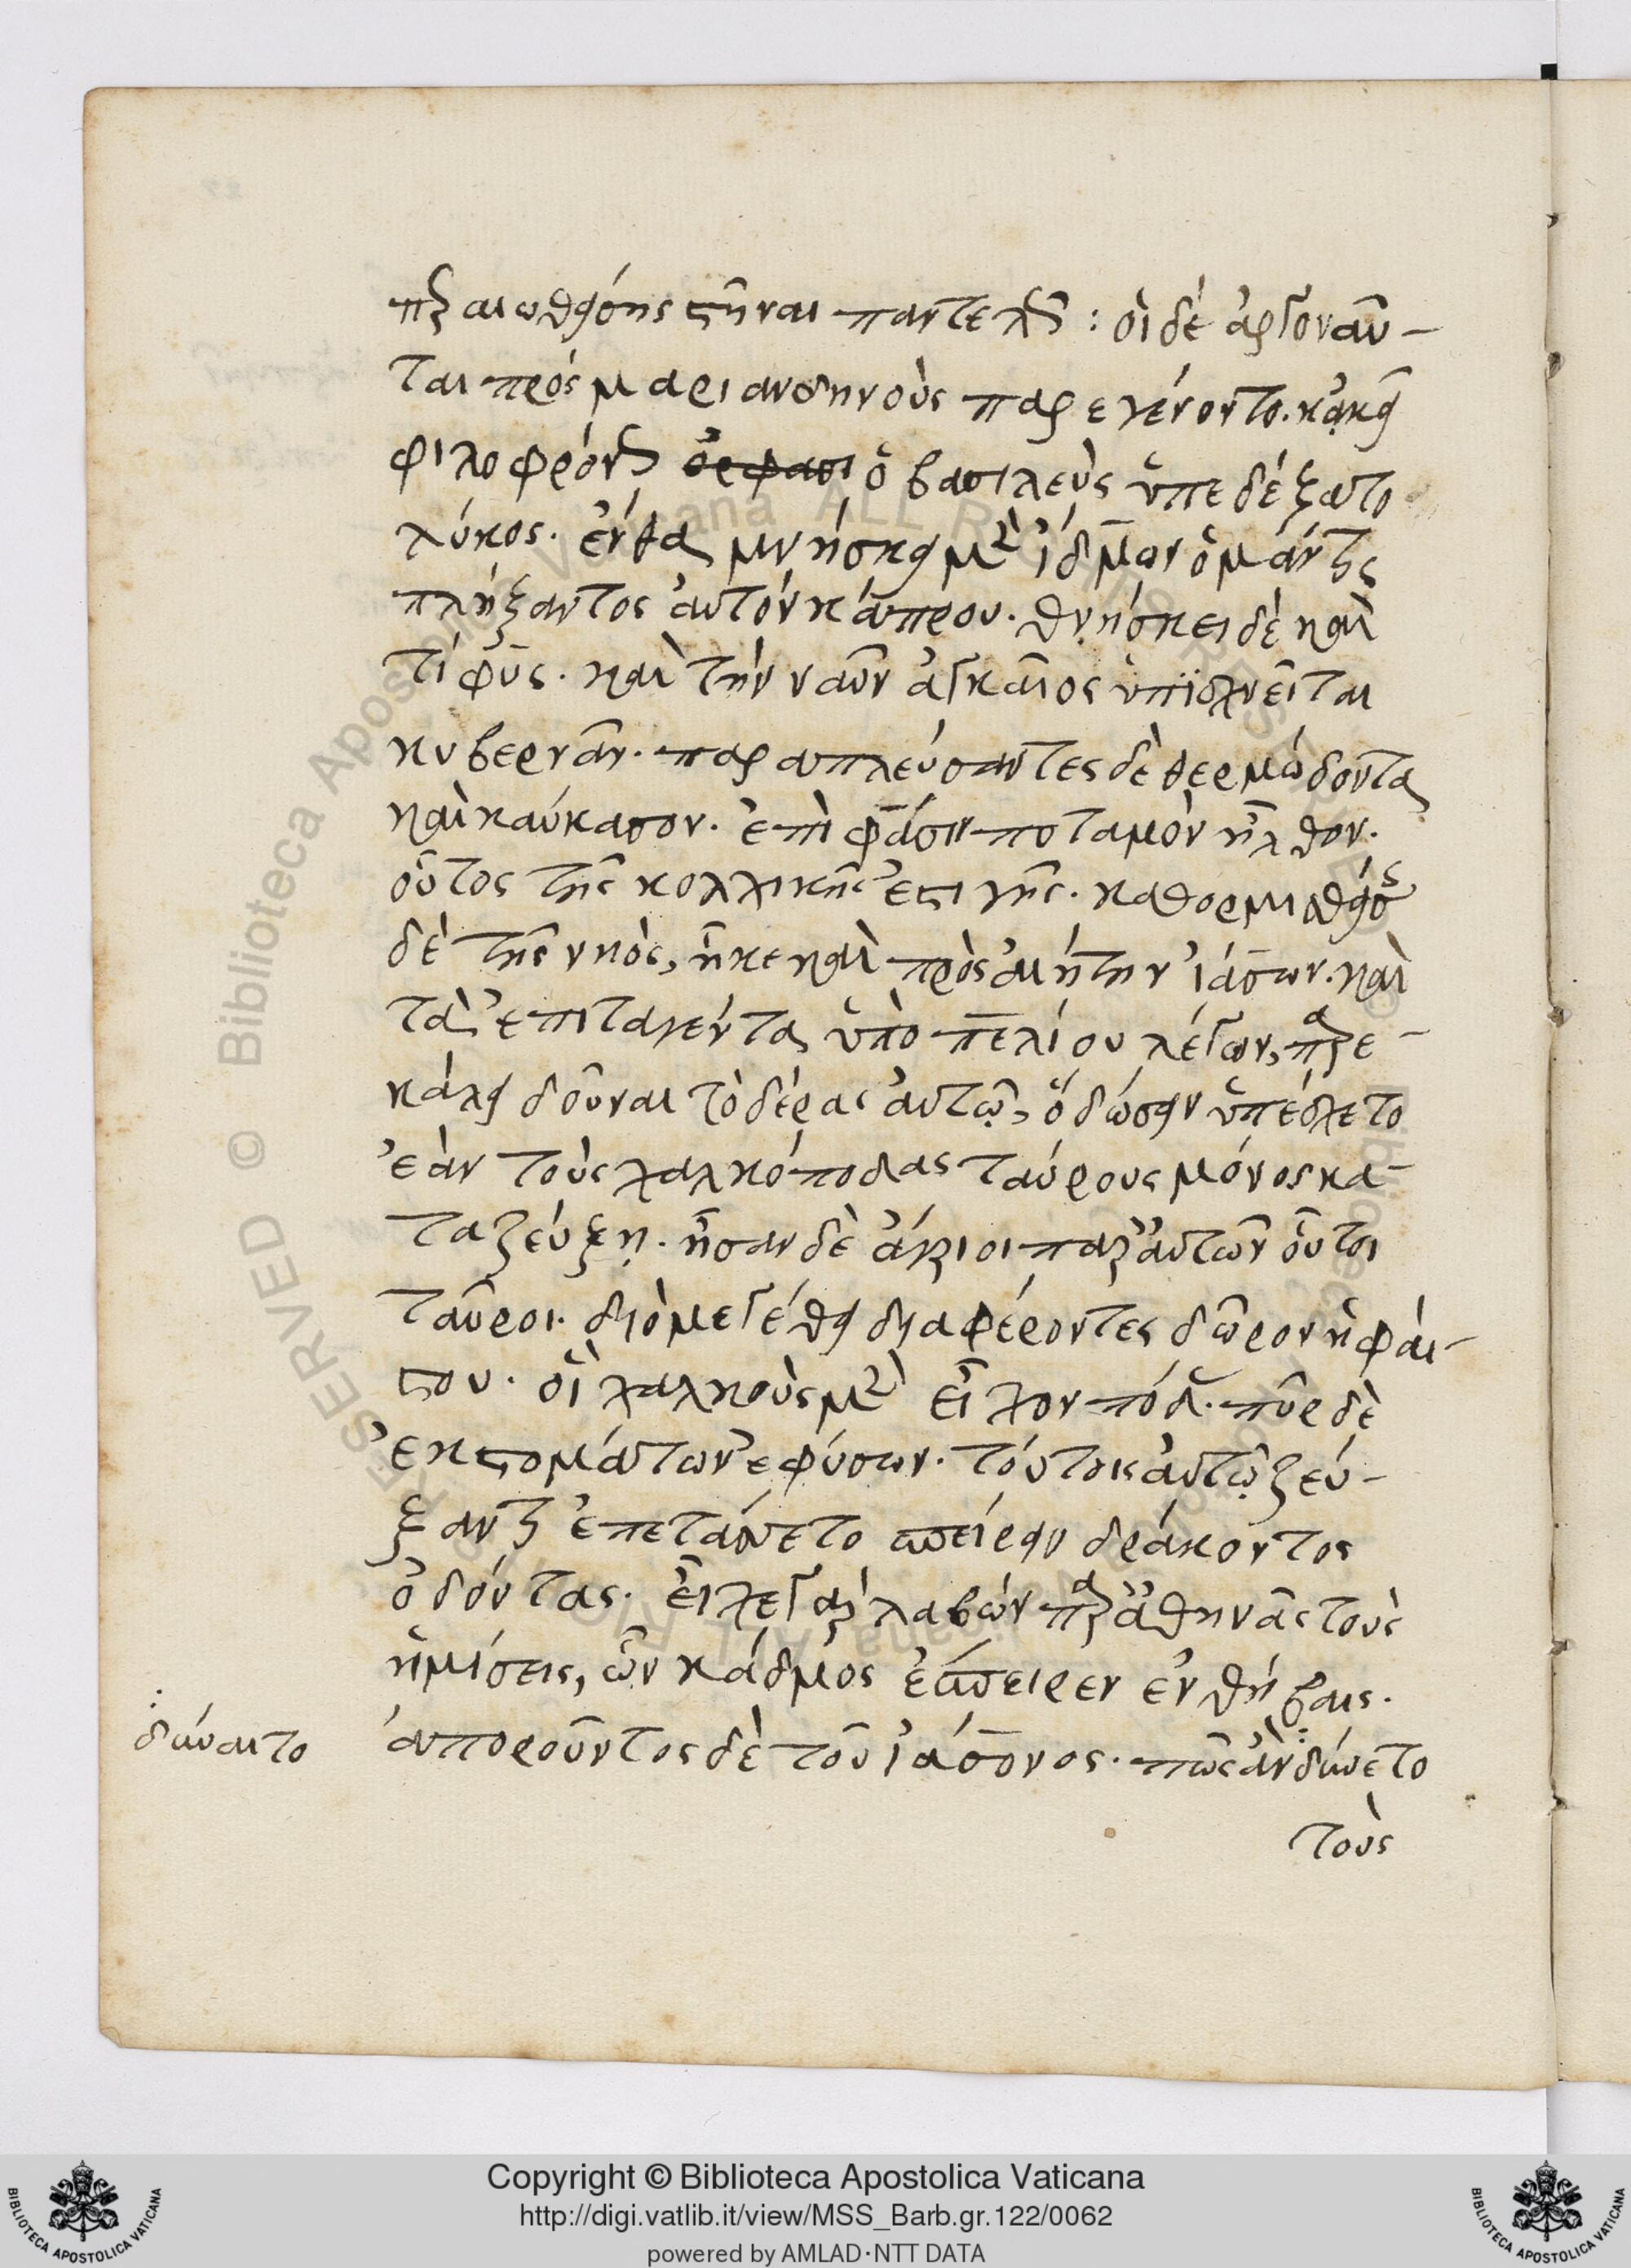 περαιωθείσης στῆναι παντελῶς: οἱ δὲ ἀργοναῦ-
ται πρὸς μαριανδηνοὺς παρεγένοντο. κᾀκεῖ
φιλοφρόνως ὀρφασι ὁ βασιλεὺς ὑπεδέξατο
λύκος. ἔνθα μνήσκει μὲν ἴδμων ὁ μάντις
πλήξαντος αὐτὸν κάπρου. θνήσκει δὲ καὶ
τίφυς. καὶ τὴν ναῦν ἀγκαῖος ὑπισχνεῖται
κυβερνᾶν. παραπλεύσαντες δὲ θερμώδοντα
καὶ καύκασον. ἐπὶ φᾶσιν ποταμὸν ἦλθον.
οὗτος τῆς κολλικῆς ἐστι γῆς. καθορμισθείσης
δὲ τῆς νηὸς, ἧκε καὶ πρὸς αἰήτην ἰάσων. καὶ
τὰ ἐπιταγέντα ὑπὸ πελίου λέγων, παρε-
κάλει δοῦναι τὸ δέρας αὐτῷ, ὁ δώσειν ὑπέσχετο
ἐὰν τοὺς χαλκόποδας ταύρους μόνος κα-
ταζεύξῃ. ἦσαν δὲ ἄγριοι παρ' αὐτῶν οὗτοι
ταῦροι. διὸ μεγέθει διαφέροντες δῶρον ἡφαί-
στου. οἳ χαλκοῦς μὲν εἶχον πόδας. πῦρ δὲ
ἐκ στομάτων ἐφύσων. τούτοις αὐτῷ ζεύ-
ξαντι ἐπετάσσετο σπείρειν δράκοντος
ὀδόντας. εἶχε γὰρ λαβὼν παρ' ἀθηνᾶς τοὺς
ἡμίσεις, ὧν κάδμος ἔσπειρεν ἐν θήβαις.
δύναιτο
ἀποροῦντος δὲ τοῦ ἰάσονος. πῶς ἂν δύνετο
τοὺς
Copyright © Biblioteca Apostolica Vaticana
http://digi.vatlib.it/view/MSS_Barb.gr.122/0062
powered by AMLAD·NTT DATA